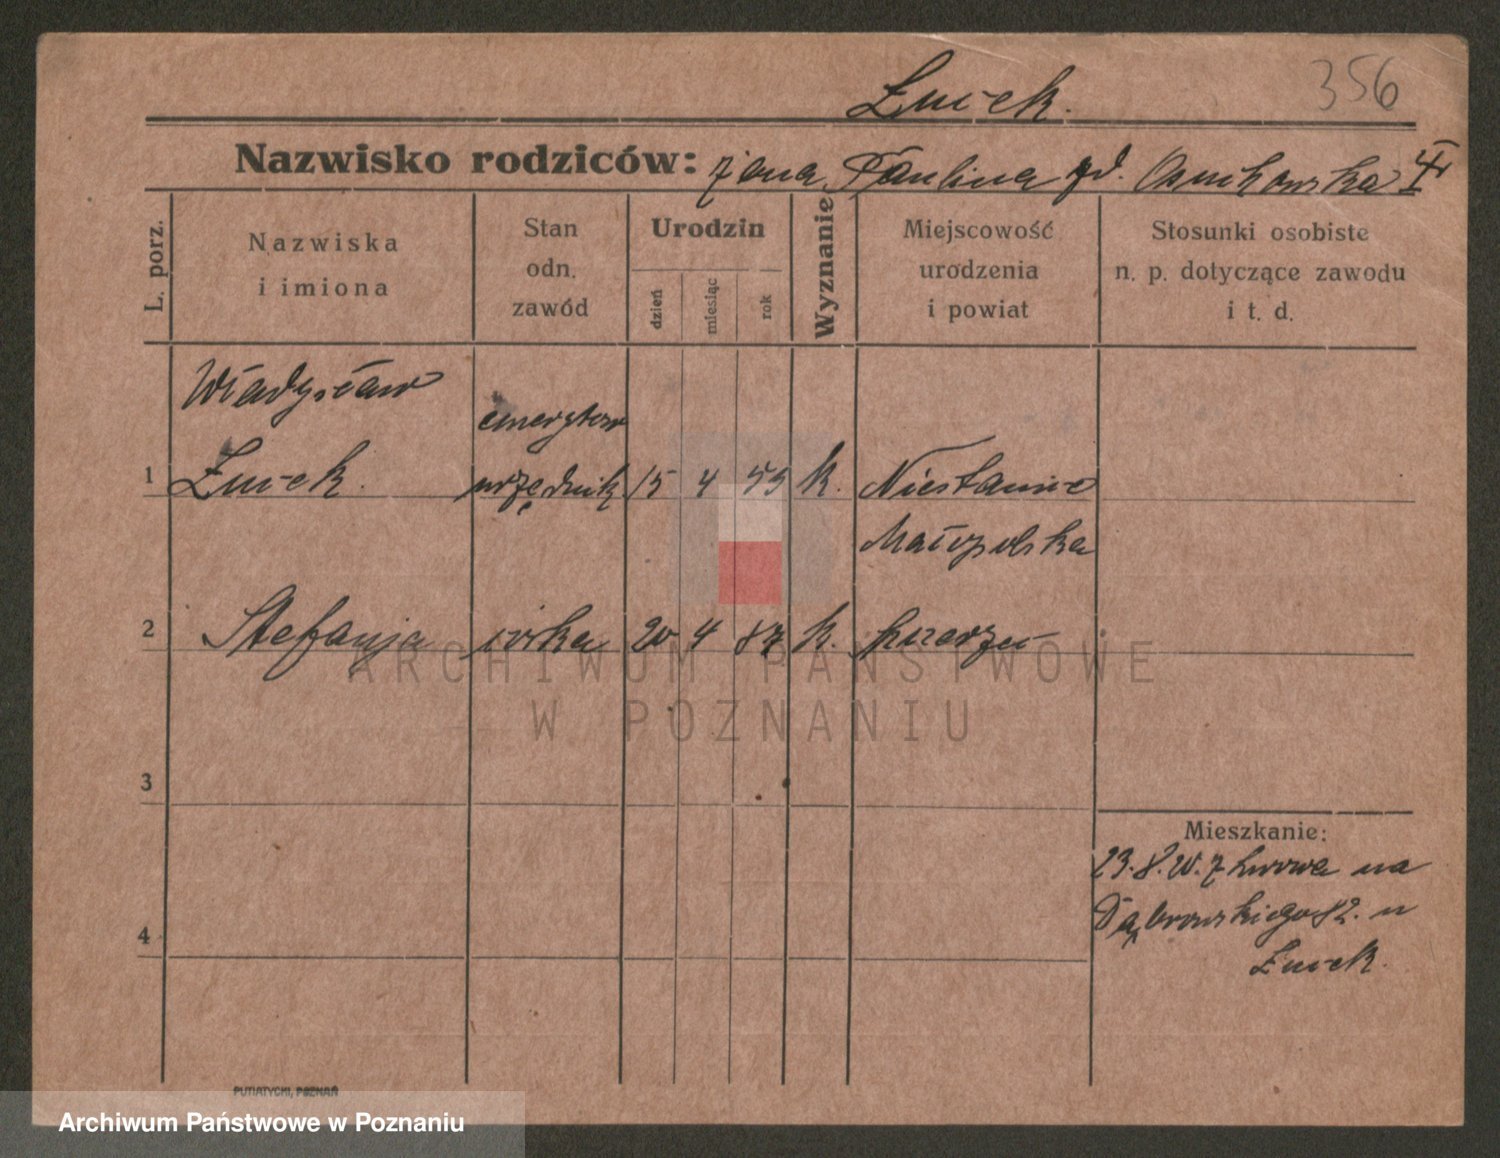 356
Nazwisko rodziców: żona Paulina zd.
L. porz.
Nazwiska
i imiona
Stan
odn.
zawód
Urodzin
dzień
miesiąc
rok
Wyznanie
Miejscowość
urodzenia
i powiat
Stosunki osobiste
n. p. dotyczące zawodu
i t. d.
Władysław
emerytow
1 urzędnik 15 4 59 k.
Małopolska
2 Stefanja córka 20 4 87 k.
3
Mieszkanie:
23.8.20. z Lwowa na
Dąbrowskiego 82. u
4
PUTIATYCKI, POZNAŃ
ARCHIWUM PAŃSTWOWE
W POZNANIU
Archiwum Państwowe w Poznaniu